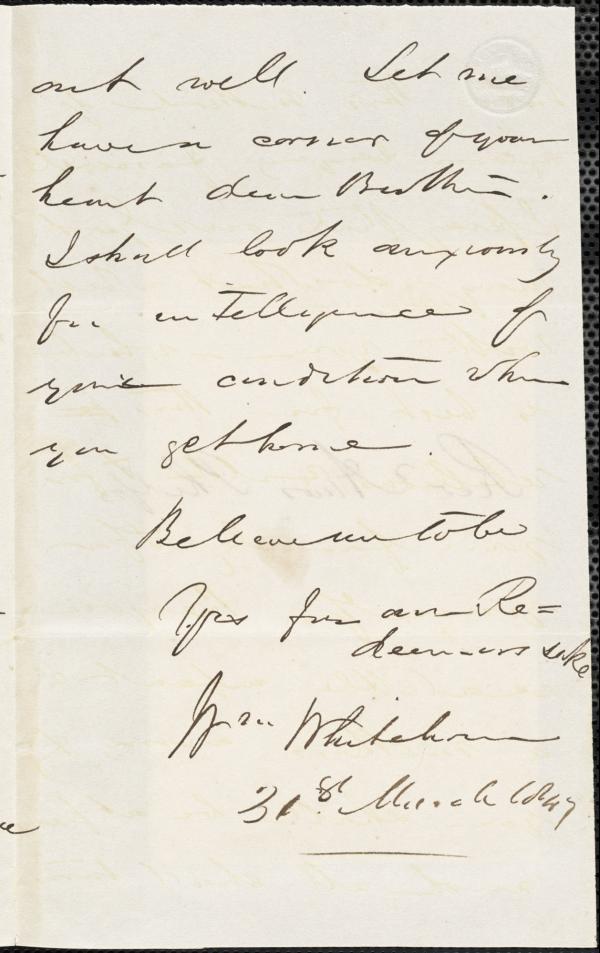 out well. Let me
have a corner of your
heart dear Brother.
I shall look anxiously
for intelligence of
your condition when
you get home.
Believe me to be
Yrs for our Re=
deemers sake
Wm Whitehorne
31st March 1847